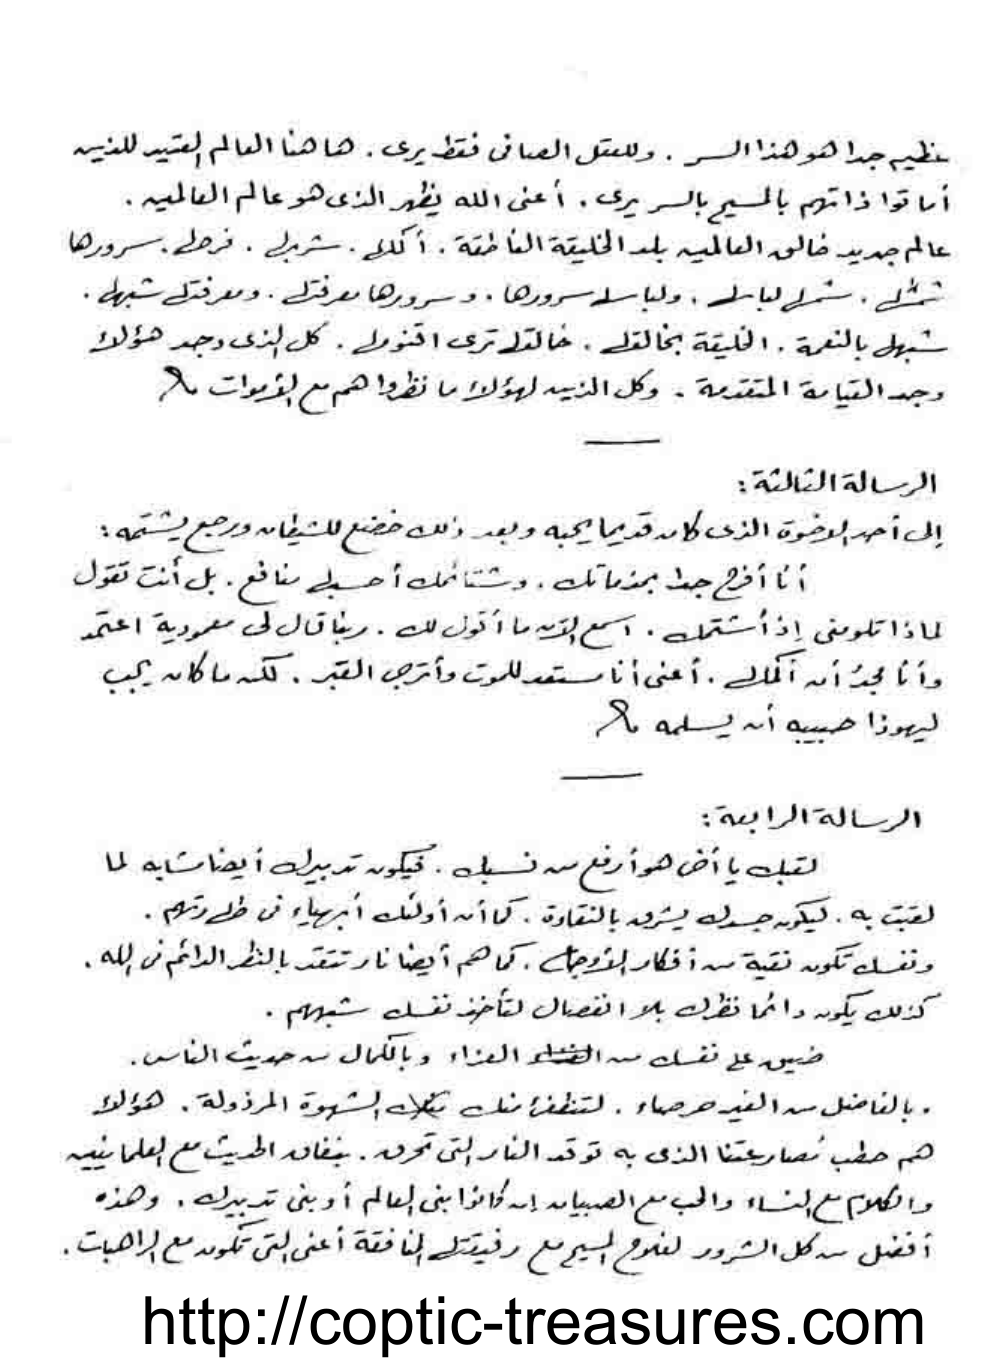 عظيم جدا هو هذا السر . وللعقل الصافى فقط يرى . ها هنا العالم العتيد للذين
أماتوا ذاتهم بالمسيح بالسر يرى . أعنى الله يظهر الذى هو عالم العالمين .
عالم جديد خالق العالمين بلد الخليقة الناطقة . أكلى . شربى . فرحى . سرورها
شمسى . شمسى لباسى . ولباسى سرورها . وسرورها معرفتى . ومعرفتى شبهى .
شبهى بالنعمة . الخليقة بخالقى . خالقى ترى اقنومى . كل الذى وجد هؤلاء
وجد القيامة المتقدمة . وكل الذين لهؤلاء ما نظروا هم مع الأموات
الرسالة الثالثة :
إلى أحد الأخوة الذى كان قديما يحبه وبعد ذلك خضع للشيطان ورجع يشتمه :
أنا أفرح جدا بمذماتك . وشتائمك أحسبها منافع . بل أنت تقول
لماذا تلومنى إذ أشتمك . اسمع الآن ما أقول لك . ربنا قال لى معمودية اعتمد
وأنا مجدّ أن أكملها . أعنى أنا مستعد للموت وأترجى القبر . لكن ما كان يجب
ليهوذا حبيبه أن يسلمه
الرسالة الرابعة :
لقبك يا أخى هو أرفع من نسبك . فيكون تدبيرك أيضا مشابه لما
لقبت به . ليكون جسدك يشرق بالنقاوة . كما أن أولئك أبهياء فى طهارتهم .
ونفسك تكون نقية من أفكار الأوجاع . كما هم أيضا نار تتقد بالنظر الدائم فى الله .
كذلك يكون دائما نظرك بلا انفصال لتأخذ نفسك شبههم .
ضيق على نفسك من الغذاء وبالكمال من حديث الناس .
وبالفاضل من الغير حرصاء . لتنطفئ منك تلك الشهوة المرذولة . هؤلاء
هم حطب مصارعتنا الذى به توقد النار التى تحرق . بنفاق الحديث مع العلمانيين
والكلام مع النساء والحب مع الصبيان إن كانوا بنى العالم أو بنى تدبيرك . وهذه
أفضل من كل الشرور لفلاح المسيح مع رفيقتى النافقة أعنى التى تكون مع الراهبات .
http://coptic-treasures.com